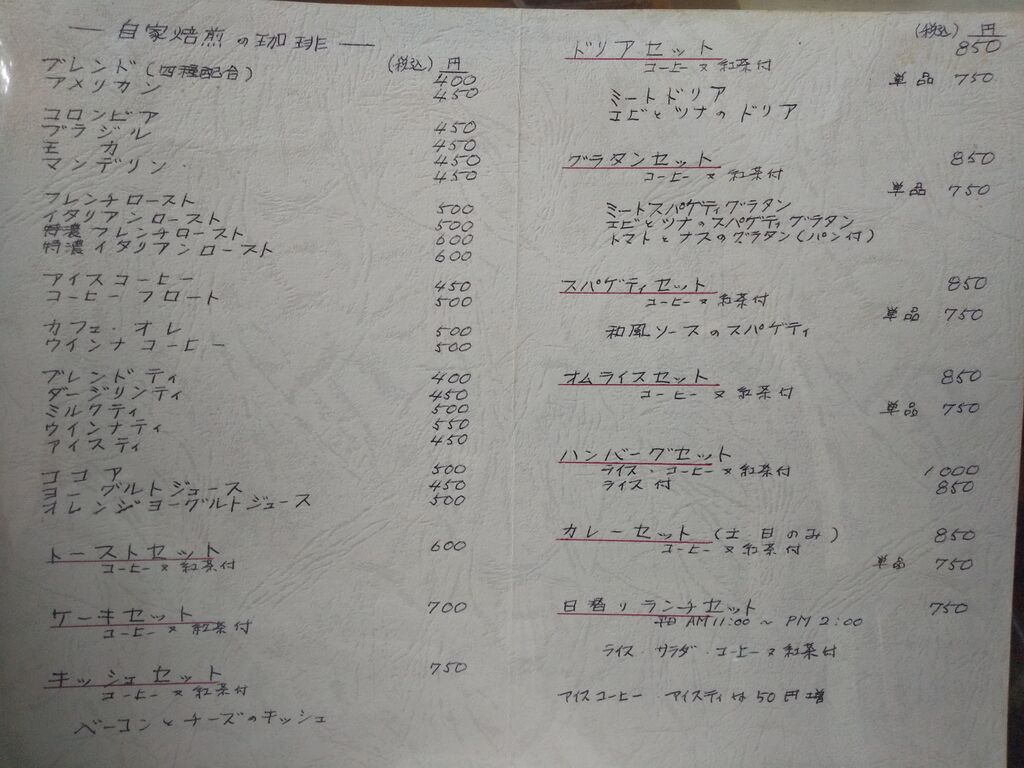 ― 自家焙煎の珈琲 ―
(税込) 円
ブレンド(四種配合) 400
アメリカン 450
コロンビア 450
ブラジル 450
モカ 450
マンデリン 450
フレンチロースト 500
イタリアンロースト 500
特濃フレンチロースト 600
特濃イタリアンロースト 600
アイスコーヒー 450
コーヒーフロート 500
カフェ・オレ 500
ウインナコーヒー 500
ブレンドティ 400
ダージリンティ 450
ミルクティ 500
ウインナティ 550
アイスティ 450
ココア 500
ヨーグルトジュース 450
オレンジヨーグルトジュース 500
トーストセット 600
コーヒー又紅茶付
ケーキセット 700
コーヒー又紅茶付
キッシュセット 750
コーヒー又紅茶付
ベーコンとチーズのキッシュ
(税込) 円
ドリアセット 850
コーヒー又紅茶付
単品 750
ミートドリア
エビとツナのドリア
グラタンセット 850
コーヒー又紅茶付
単品 750
ミートスパゲティグラタン
エビとツナのスパゲティグラタン
トマトとナスのグラタン(パン付)
スパゲティセット 850
コーヒー又紅茶付
単品 750
和風ソースのスパゲティ
オムライスセット 850
コーヒー又紅茶付
単品 750
ハンバーグセット
ライス・コーヒー又紅茶付 1000
ライス付 850
カレーセット(土日のみ) 850
コーヒー又紅茶付
単品 750
日替りランチセット 750
平日 AM11:00 ～ PM2:00
ライス・サラダ・コーヒー又紅茶付
アイスコーヒー・アイスティは50円増